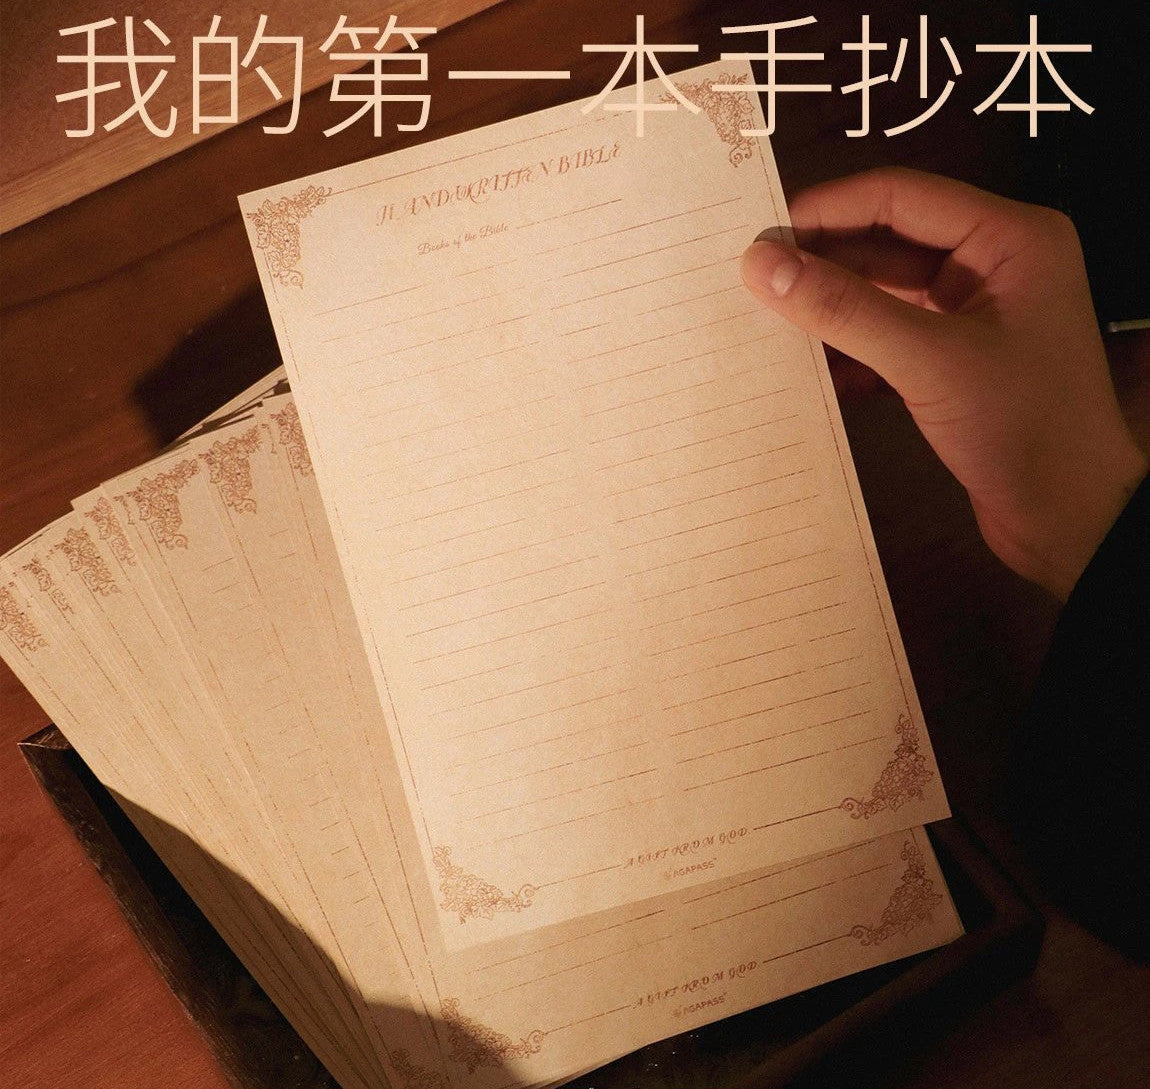 我的第一本手抄本
HANDWRITTEN BIBLE
Books of the Bible
A GIFT FROM GOD
AGAPASS
A GIFT FROM GOD
AGAPASS